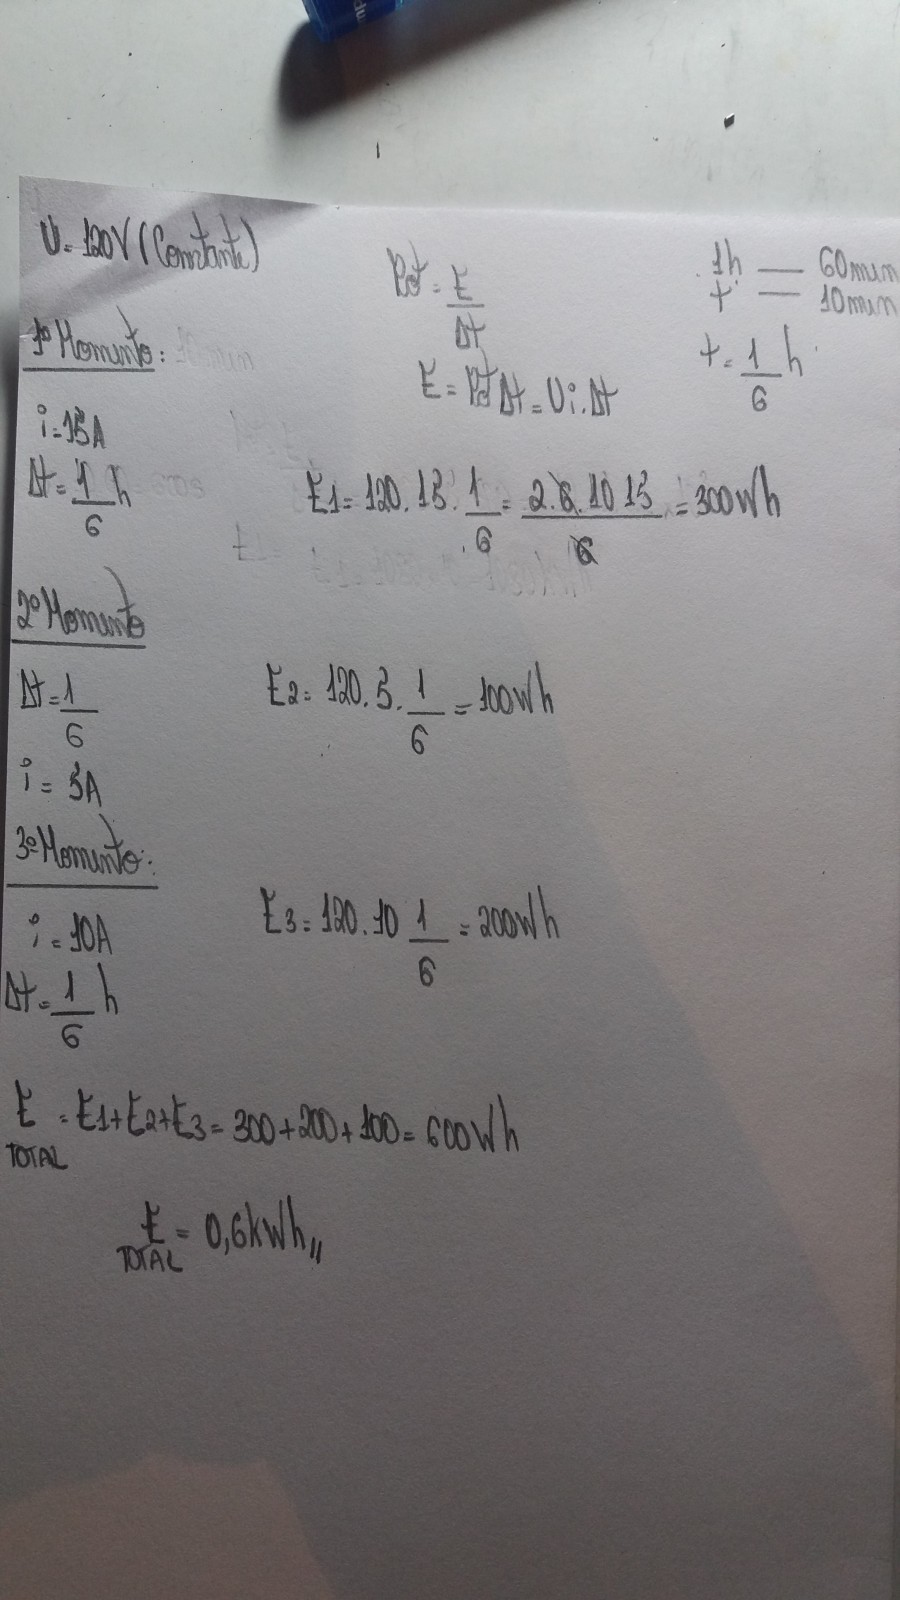 U = 120V (Constante)
Pot = E / Δt
E = Pot Δt = U i . Δt
1h — 60min
t — 10min
t = 1/6 h
1º Momento:
i = 15A
Δt = 1/6 h
E1 = 120 . 15 . 1/6 = 2 . 6 . 10 15 / 6 = 300Wh
2º Momento
Δt = 1/6
i = 5A
E2 = 120 . 5 . 1/6 = 100Wh
3º Momento:
i = 10A
Δt = 1/6 h
E3 = 120 . 10 1/6 = 200Wh
E TOTAL = E1 + E2 + E3 = 300 + 200 + 100 = 600Wh
E TOTAL = 0,6kWh,,